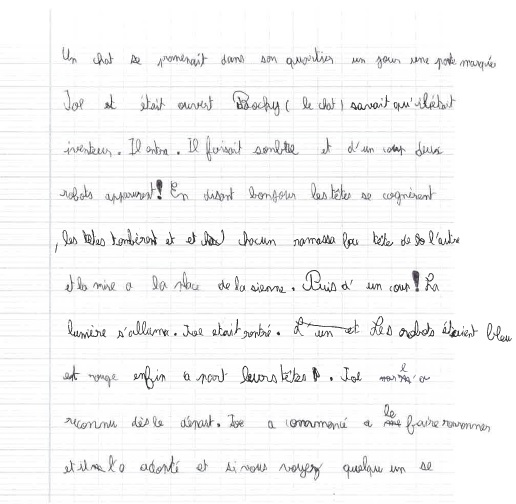 Un chat se promenait dans son quartier un jour une porte marquée
Joe et était ouvert Boochy ( le chat ) savait qu'il était
inventeur. Il entra. Il faisait sombre et d'un coup deux
robots apparurent! En disant bonjour les têtes se cognèrent
, les têtes tombèrent et et chacun ramassa la tête de l'autre
et la mise a la place de la sienne. Puis d' un coup! La
lumière s'alluma. Joe etait rentré. L'un et Les robots étaient bleu
est rouge enfin a part leurs têtes. Joe l'a
reconnu dès le départ. Joe a commencé a le faire ronronner
et il l'a adopté et si vous voyez quelqu un se